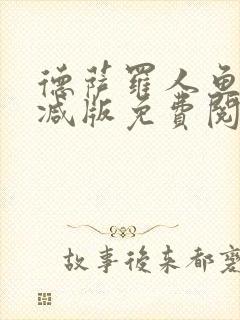 德薩羅人魚
減版免費閱
故事後來都